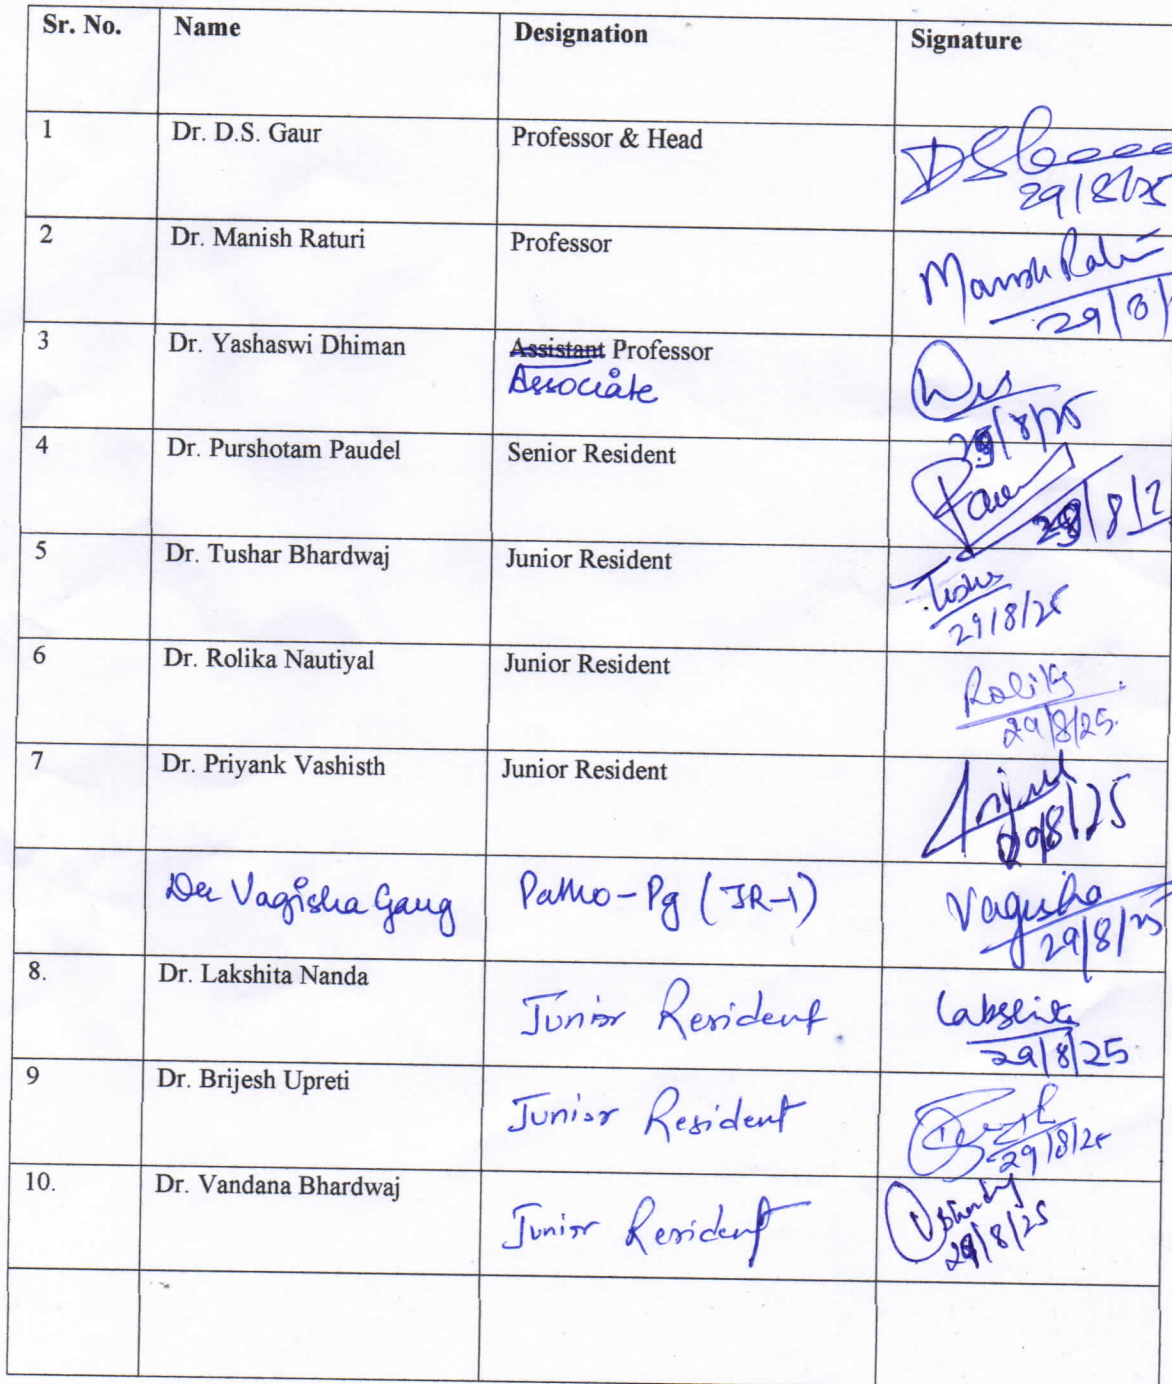 Sr. No. Name Designation Signature
1 Dr. D.S. Gaur Professor & Head DSGaur
29/8/25
2 Dr. Manish Raturi Professor Manish Raturi
29/8/
3 Dr. Yashaswi Dhiman Assistant Professor
Associate
29/8/25
4 Dr. Purshotam Paudel Senior Resident
29/8/2
5 Dr. Tushar Bhardwaj Junior Resident
29/8/25
6 Dr. Rolika Nautiyal Junior Resident Rolika
29/8/25.
7 Dr. Priyank Vashisth Junior Resident
29/8/25
Dr Vagisha Garg Patho-Pg (JR-1) Vagisha
29/8/25
8. Dr. Lakshita Nanda Junior Resident Lakshita
29/8/25
9 Dr. Brijesh Upreti Junior Resident
29/8/25
10. Dr. Vandana Bhardwaj Junior Resident
29/8/25